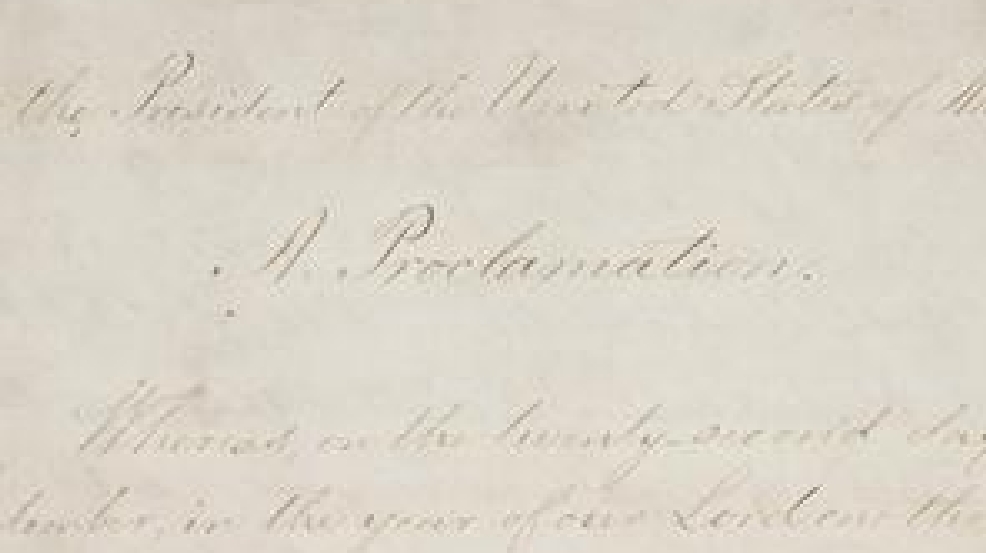 the President of the United States of
A Proclamation.
Whereas, on the twenty-second day
tember, in the year of our Lord one tho